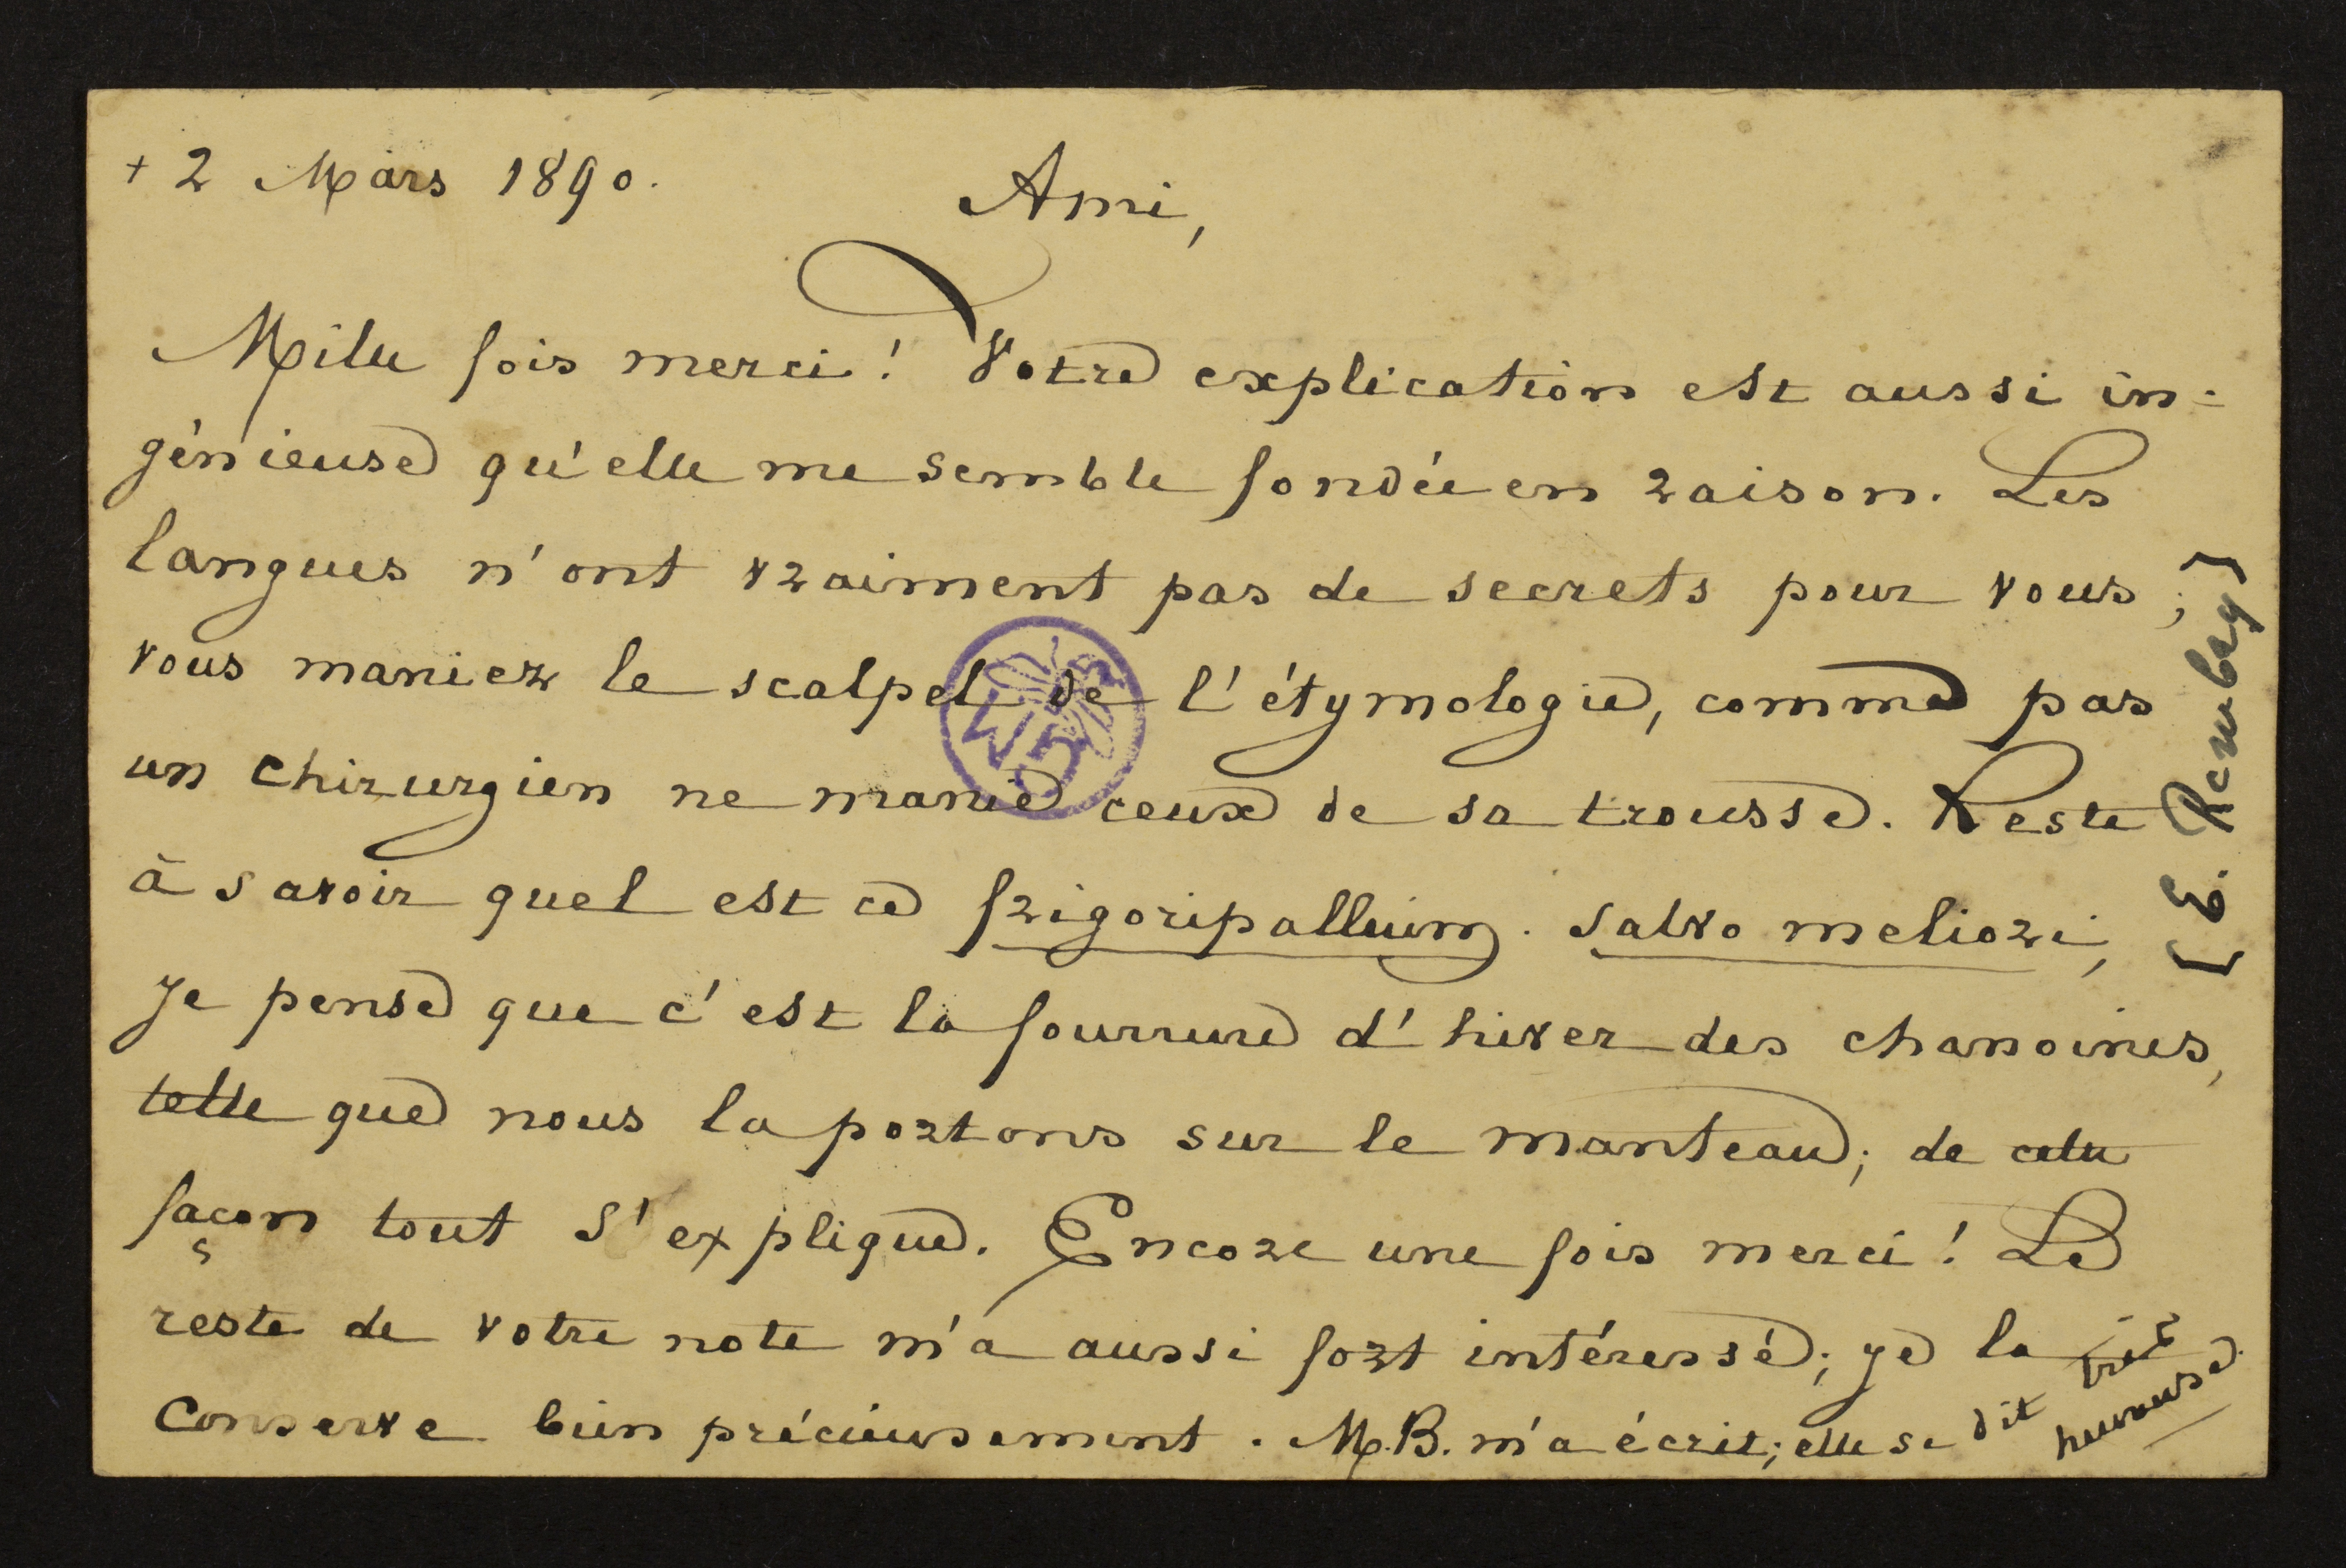 + 2 Mars 1890.
Ami,
Mille fois merci! Votre explication est aussi in-
génieuse qu'elle me semble fondée en raison. Les
langues n'ont vraiment pas de secrets pour vous;
vous maniez le scalpel de l'étymologie, comme pas
un chirurgien ne manie ceux de sa trousse. Reste
à savoir quel est ce frigoripallium. Salvo meliori,
je pense que c'est la fourrure d'hiver des chanoines,
telle que nous la portons sur le manteau; de cette
façon tout s'explique. Encore une fois merci! Le
reste de votre note m'a aussi fort intéressé; je la
conserve bien précieusement. M.B. m'a écrit; elle se dit très
heureuse.
[E. Rembry]